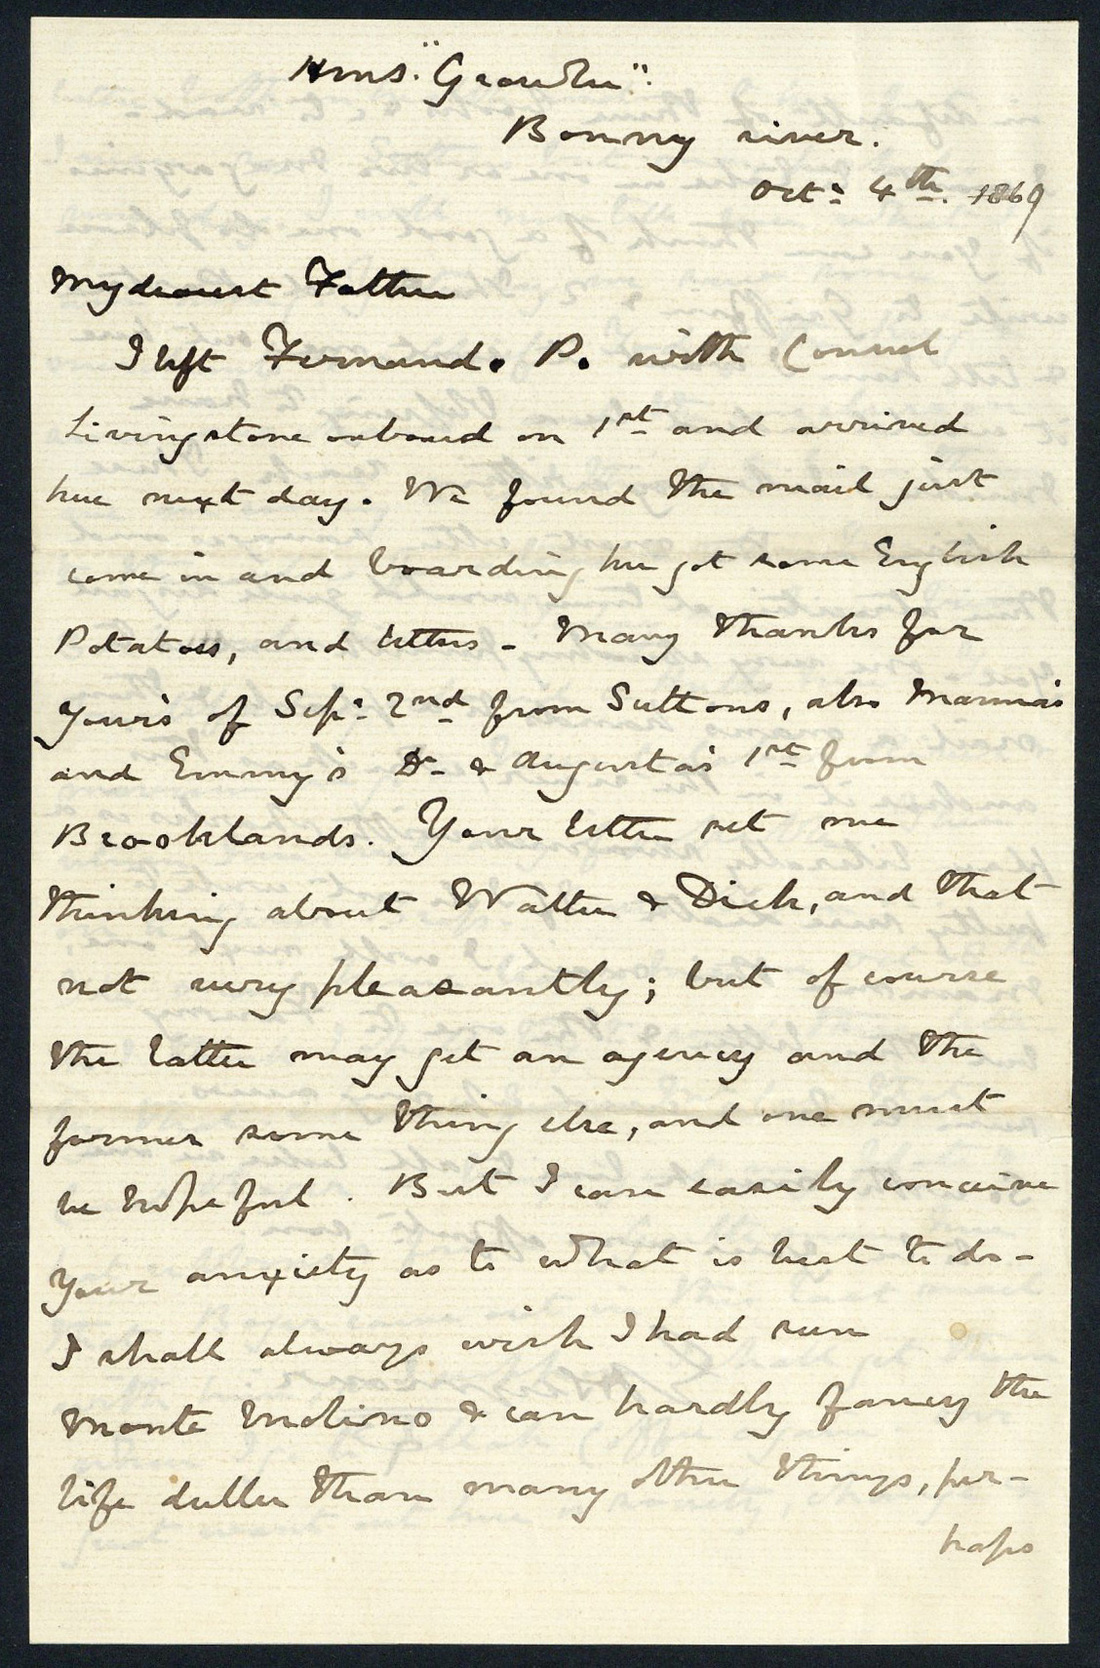 HMS. "Growler".
Bonny river.
Oct: 4th. 1869
My dearest Father
I left Fernando P. with Consul
Livingstone onboard on 1st and arrived
here next day. We found the mail just
come in and boarding her got some English
Potatoes, and letters - Many thanks for
yours of Sep: 2nd from Suttons, also Mamma's
and Emmy's Do. & Augusta's 1st from
Brooklands. Your letter set me
thinking about Walter & Dick, and that
not very pleasantly; but of course
the latter may get an agency and the
former some thing else, and one must
be hopeful. But I can easily conceive
Your anxiety as to what is best to do -
I shall always wish I had seen
Monte Molino & can hardly fancy the
life duller than many other things, per-
haps